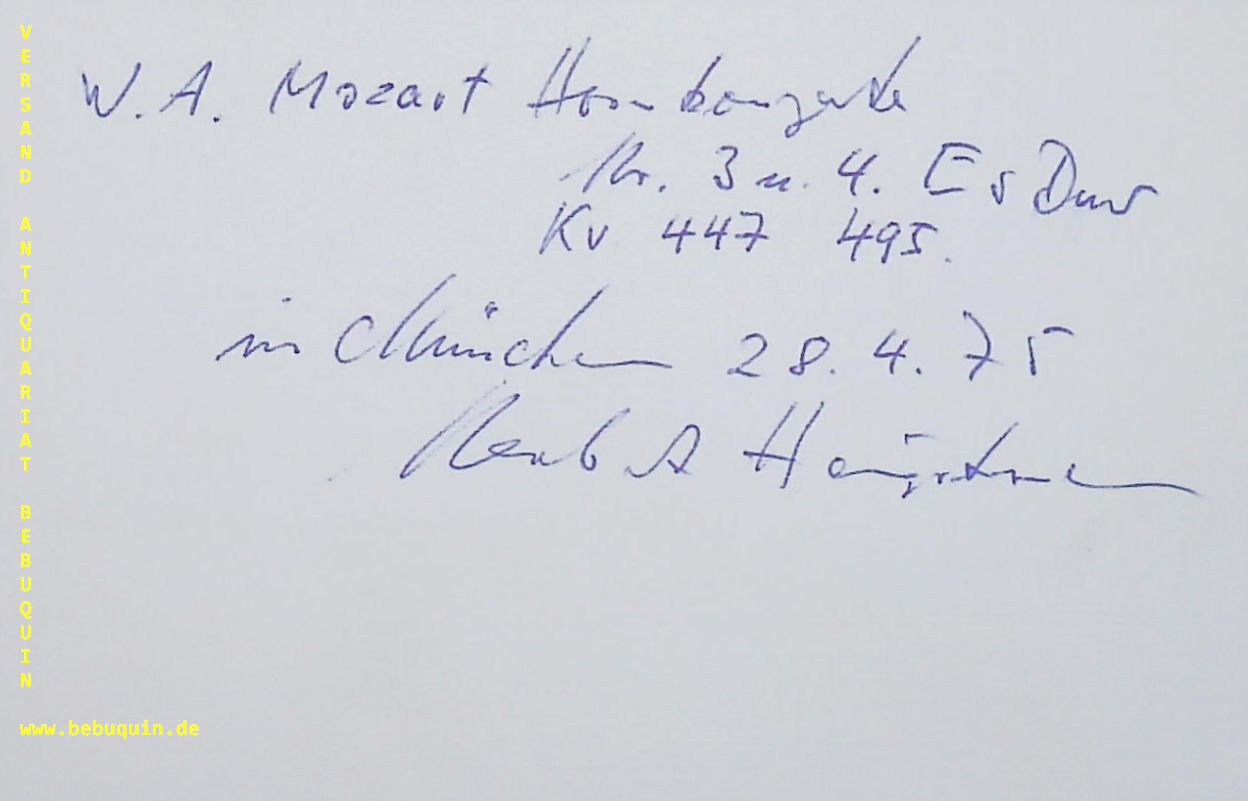 W. A. Mozart Hornkonzerte
Nr. 3 u. 4. Es Dur
KV 447 495.
in München 28.4.75
VERSAND ANTIQUARIAT BEBUQUIN
www.bebuquin.de